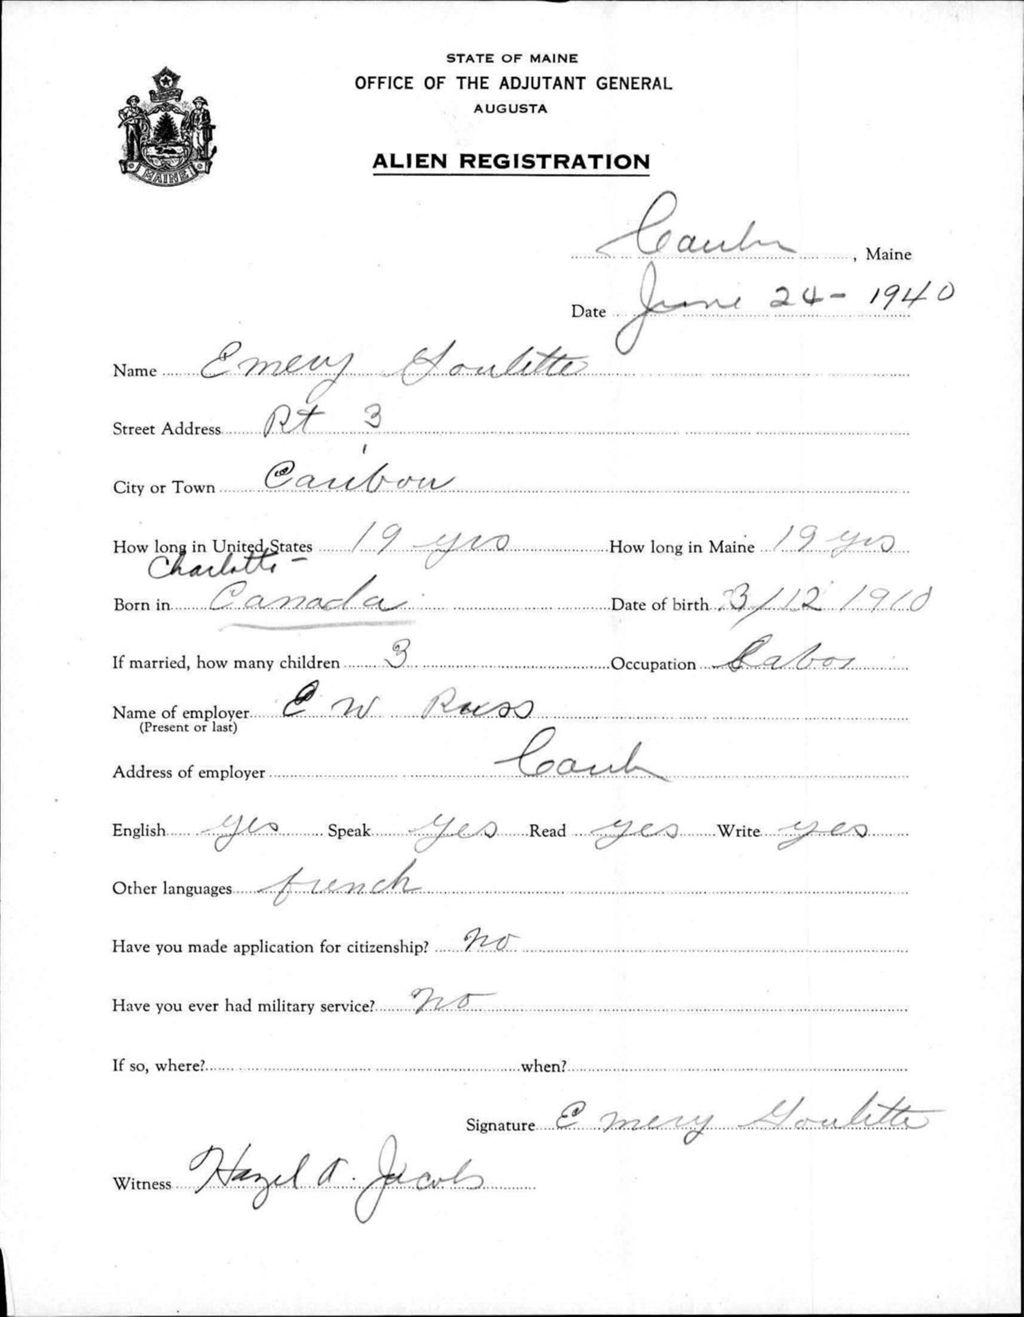 STATE OF MAINE
OFFICE OF THE ADJUTANT GENERAL
AUGUSTA
ALIEN REGISTRATION
MAINE
Caribou, Maine
Date June 24 - 1940
Name Emery Goulette
Street Address Rt 3
City or Town Caribou
How long in United States 19 yrs How long in Maine 19 yrs
Charlotte -
Born in Canada Date of birth 3/12 1910
If married, how many children 3 Occupation Labor
Name of employer E W Russ
(Present or last)
Address of employer Carib
English yes Speak yes Read yes Write yes
Other languages french
Have you made application for citizenship? no
Have you ever had military service? no
If so, where? when?
Signature Emery Goulette
Witness Hazel A. Jacobs